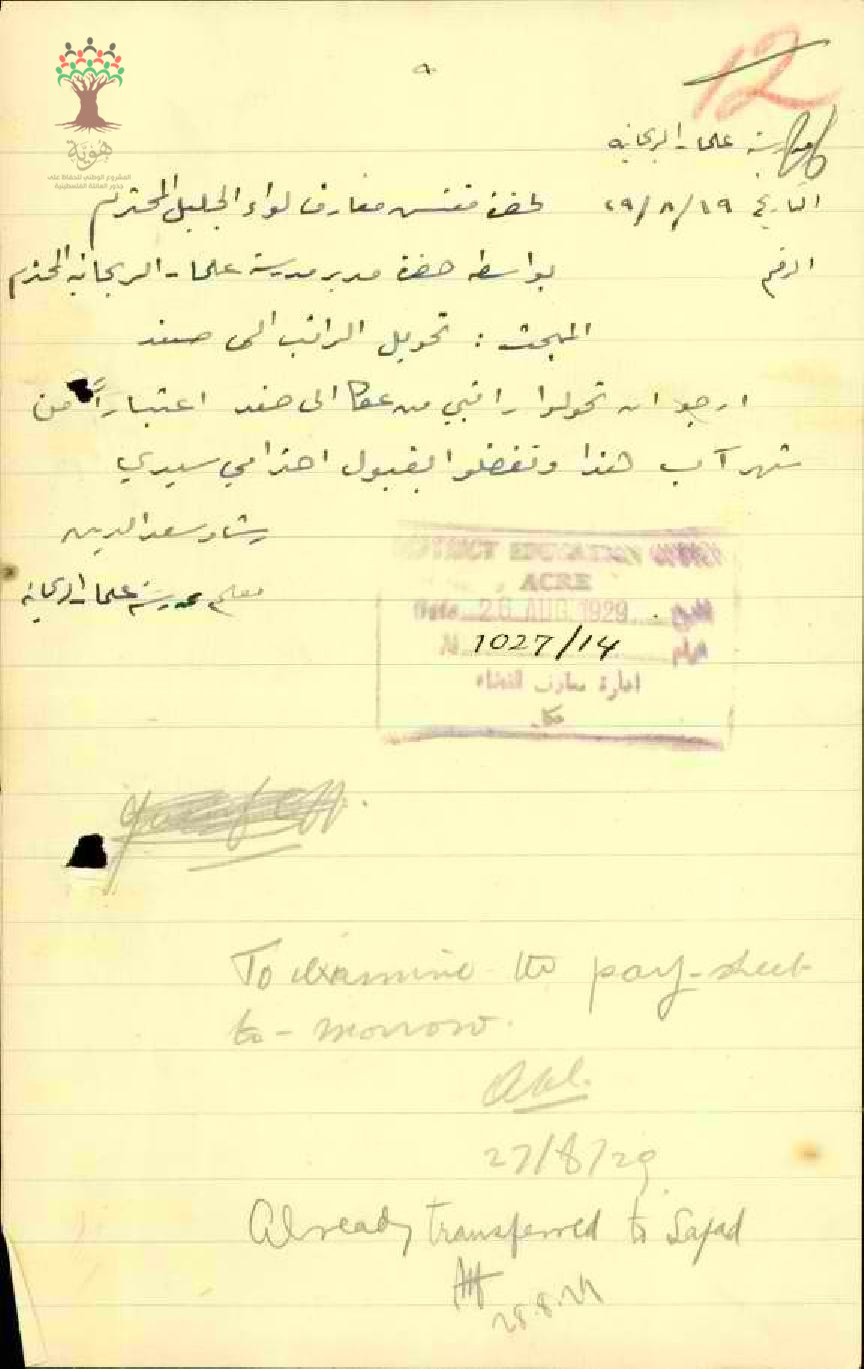 12
٩
هوية
المشروع الوطني للحفاظ على
جذور العائلة الفلسطينية
مدرسة علما - الريحانيه
التاريخ ١٩/٨/٢٩
لحضرة مفتش معارف لواء الجليل المحترم
الرقم
بواسطة حضرة مدير مدرسة علما - الريحانيه المحترم
المبحث : تحويل الراتب الى صفد
ارجو ان تحولوا راتبي من عكا الى صفد اعتباراً من
شهر آب هذا وتفضلوا بقبول احترامي سيدي
رشاد سعد الدين
معلم مدرسة علما - الريحانيه
DISTRICT EDUCATION OFFICE
ACRE
Date 26 AUG 1929 التاريخ
N 1027/14 الرقم
ادارة معارف القضاء
عكا
To examine the pay-sheet
to-morrow.
27/8/29
Already transferred to Safad
28.8.29